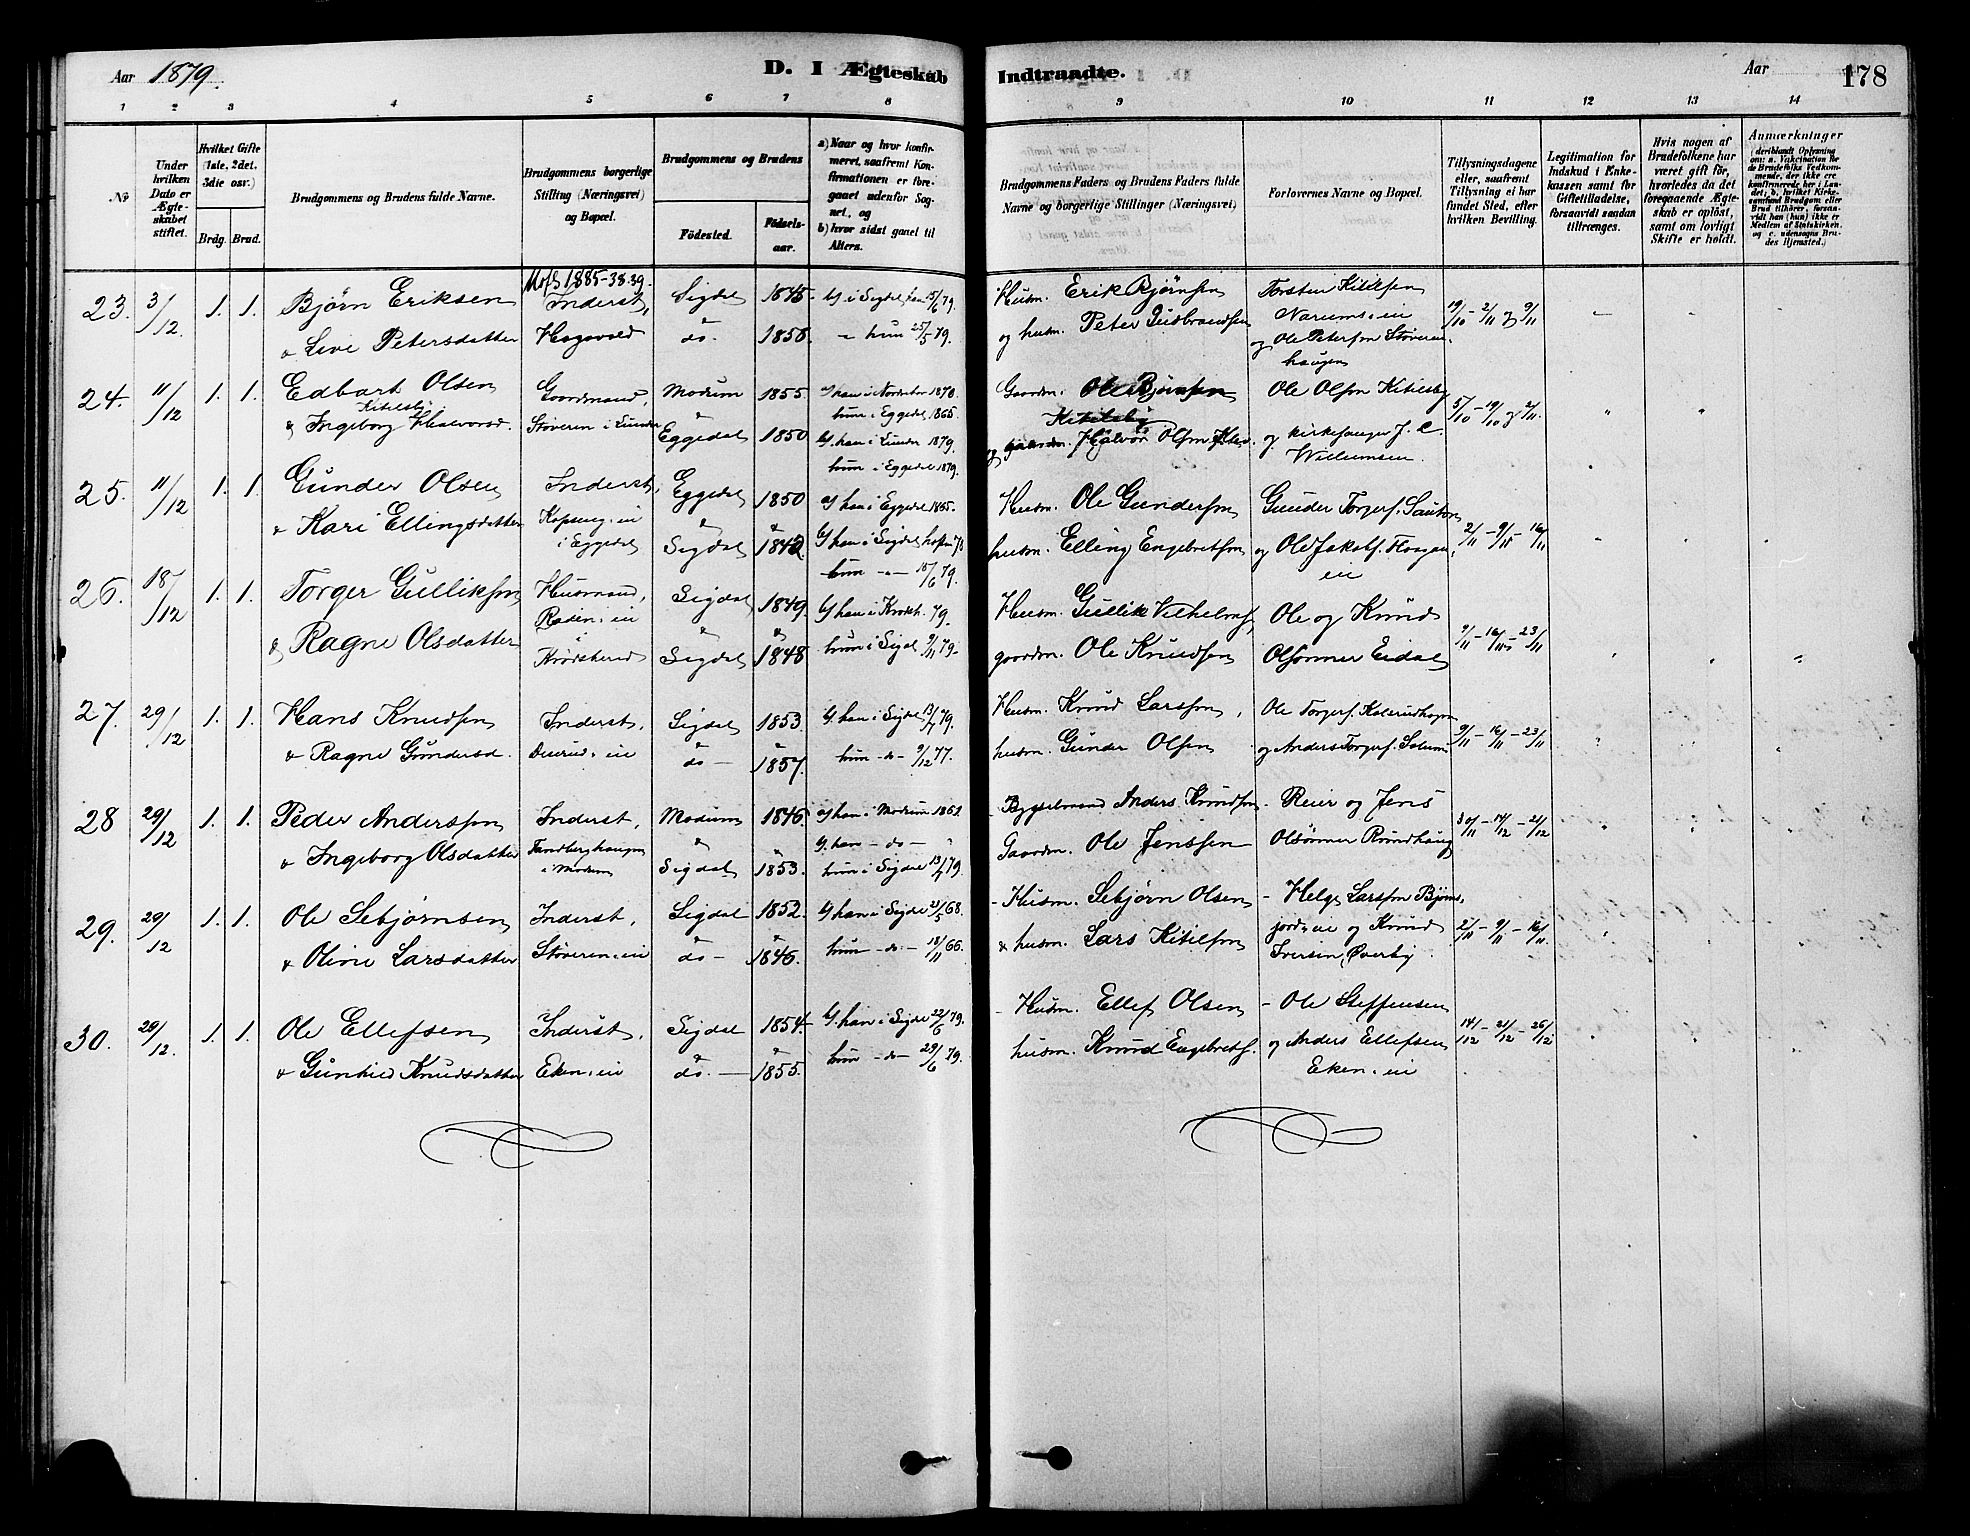 Aar 1879. D. I Ægteskab
1 2 3 4 5 6 7 8
No
Under hvilken Dato er Ægteskabet stiftet.
Hvilket Gifte (1ste, 2det, 3die osv.)
Brdg. Brud.
Brudgommens og Brudens fulde Navne.
Brudgommens borgerlige Stilling (Næringsvei) og Bopæl.
Brudgommens og Brudens
Fødested. Fødselsaar.
a) Naar og hvor konfirmeret, saafremt Konfirmationen er foregaaet udenfor Sognet, og
b) hvor sidst gaaet til Alters.
23. 3/12. 1. 1. Bjørn Eriksen Inderst, Sigdal 1845
& Live Petersdatter Hagavold do. 1858
24. 11/12 1. 1. Edbart Olsen Gaardmand, Modum 1855.
Kitilsby
& Ingeborg Halvorsd. Støveren i Lunder Eggedal 1850
a) han i Norderhov 1870.
hun i Eggedal 1865.
b) han i Lunder 1879.
hun i Eggedal 1879.
25. 11/12 1. 1. Gunder Olsen Inderst, Eggedal 1850
& Kari Ellingsdatter i Eggedal Sigdal 1842
a) han i Eggedal 1865.
26. 18/12 1. 1. Torger Gulliksen Husmand, Sigdal 1849
& Ragne Olsdatter Krødsherred Sigdal 1848
hun i Sigdal 9/11 79.
27. 29/12 1. 1. Hans Knudsen Inderst, Sigdal 1853
& Ragne Gundersd. do 1857.
b. han i Sigdal 13/7 79.
hun - do - 9/12 77.
28 29/12 1. 1. Peder Anderssen Inderst, Modum 1846.
& Ingeborg Olsdatter i Modum Sigdal 1853.
a) han i Modum 1862.
b. han - do -
hun i Sigdal 13/7 79.
29. 29/12 1. 1. Ole Sebjørnsen Inderst, Sigdal 1852.
& Oline Larsdatter Støveren. ei do 1846.
b) han i Sigdal 21/5 68.
hun - do - 18/11 66.
30. 29/12. 1. 1. Ole Ellefsen Inderst, Sigdal 1854
& Gunhild Knudsdatter Eken. ei do. 1855.
b. han i Sigdal 22/6 79.
hun - do - 29/6 79.
Indtraadte. Aar 178
9 10 11 12 13 14
Brudgommens Faders og Brudens Faders fulde Navne og borgerlige Stillinger (Næringsvei)
Forlovernes Navne og Bopæl.
Tillysningsdagene eller, saafremt Tillysning ei har fundet Sted, efter hvilken Bevilling.
Legitimation for Indskud i Enkekassen samt for Giftetilladelse, forsaavidt saadan tiltrænges.
Hvis nogen af Brudefolkene har været gift før, hvorledes da det foregaaende Ægteskab er opløst, samt om lovligt Skifte er holdt.
Anmærkninger
Husm. Erik Bjørnsen Torsten Kitilsen 19/10 - 2/11 & 9/11
og husm. Peter Gudbrandsen og Ole Petersen
Gaardm. Ole Bjørnsen Ole Olsen Kitilsby 5/10 - 19/10 & 2/11.
Kitilsby
og gaardm. Halvor Olsen og kirkesanger J. C.
Willumsen.
Husm. Ole Gundersen Gunder Torgers. 2/11 - 9/11 - 16/11
husm. Elling Engebretsen og Ole Jakobs.
Husm. Gullik Ole og Knud 9/11 - 16/11 - 23/11
gaardm. Ole Knudsen Olsønner Eidal
Husm. Knud Larssen, Ole Torgers. 9/11 - 16/11 - 23/11
husm. Gunder Olsen og Anders Torgers.
Bygselmand Anders Knudsen - Reier og Jens 30/11 - 14/12 - 21/12
Gaardm. Ole Jenssen Olsønner Rundhaug
- Husm. Sebjørn Olsen - Helge Larssen Bjørns 2/11 - 9/11 - 16/11
& husm. Lars Kitilsen jord. ei og Knud
Iversen, Øverby
- Husm. Ellef Olsen - Ole Steffensen 14/12 - 21/12 - 26/12
husm. Knud Engebrets. og Anders Ellefsen
Eken. ei